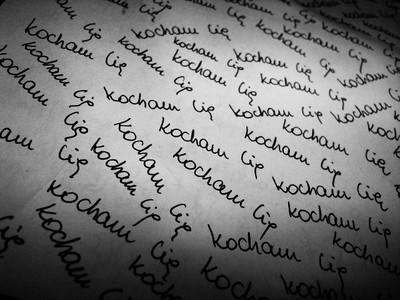 kocham Cię
kocham Cię
kocham Cię
kocham Cię
kocham Cię
kocham Cię
kocham Cię
kocham Cię
kocham Cię
kocham Cię
kocham Cię
kocham Cię
kocham Cię
kocham Cię
kocham Cię
kocham Cię
kocham Cię
kocham Cię
kocham Cię
kocham Cię
kocham Cię
Cię
kocham
kocham
kocham